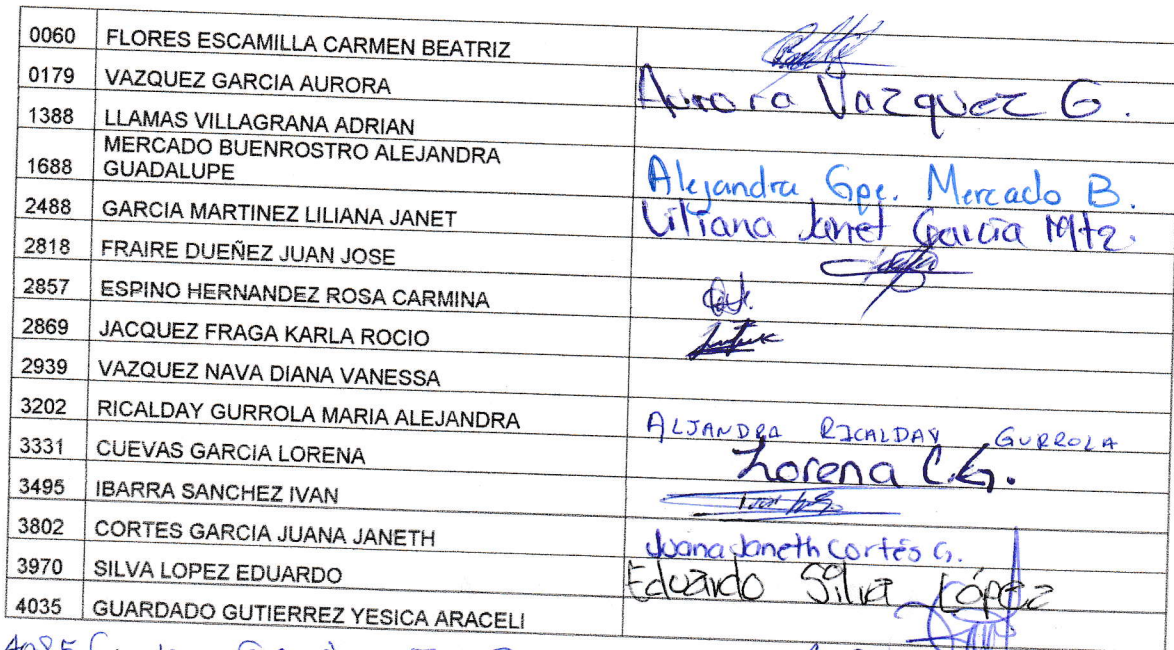 0060 FLORES ESCAMILLA CARMEN BEATRIZ
0179 VAZQUEZ GARCIA AURORA Aurora Vazquez G.
1388 LLAMAS VILLAGRANA ADRIAN
1688 MERCADO BUENROSTRO ALEJANDRA
GUADALUPE Alejandra Gpe. Mercado B.
2488 GARCIA MARTINEZ LILIANA JANET Liliana Janet García Mtz.
2818 FRAIRE DUEÑEZ JUAN JOSE
2857 ESPINO HERNANDEZ ROSA CARMINA
2869 JACQUEZ FRAGA KARLA ROCIO
2939 VAZQUEZ NAVA DIANA VANESSA
3202 RICALDAY GURROLA MARIA ALEJANDRA ALJANDRA RICALDAY GURROLA
3331 CUEVAS GARCIA LORENA Lorena C.G.
3495 IBARRA SANCHEZ IVAN
3802 CORTES GARCIA JUANA JANETH Juana Janeth Cortés G.
3970 SILVA LOPEZ EDUARDO Eduardo Silva López
4035 GUARDADO GUTIERREZ YESICA ARACELI